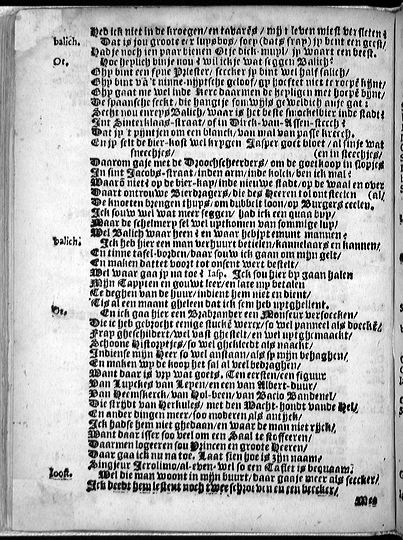 Hed ick niet in de kroegen/ en tavarēs/ mijn leven miest versleten?
balich. Dat is jou groote eer lupsbos, soep (dats fray) jp bent een geest/
Had je noch ien paar bienen Otje dick-muyl/ jp waart een beest.
Ot. Hoe heplich binje nou? wil ick je wat seggen Balich?
Ghy bint een fyne Priester/ seecker jp bint wel half salich/
Ghy bint vā't ninne-nijptsche geloof/ gy hoefset niet te
Ghy gaat me wel inde Kerc daarmen de heyligen met
De spaansche seckt, die hangtje fonwijls geweldich ande gat:
Secht nou mereys Balich/ waar is het beste snoekelbier inde stadt?
Int Sinterklaas-straat/ of in Dirck-van-Assen-steech?
Dat jp't pijntjen om een blanck/ van mal van passe kreech.
En jp selt de bier-kost wel krygen Jasper goet bloet/ al sinje wat
sneechjes/ (en in steechjes/
Daarom gaje met de Droochscheerders/ om de goetkoop in slopjes
In sint Jacobs-straat/ inden arm/ inde kolck/ ben ick mal?
Waarō nieet op de bier-kay/ inde nieuwe stadt/ op de waal en over
Daart ontrouwe Berdragers/ die des Heeren tol ontsteelen (al/
De knoeten brengen thuys/ om dubbelt loon/ op Burgers ceelen.
Ick souw wel wat meer seggen/ had ick een quaa buy/
Maar de schelmery sel wel uptkomen van sommige luy/
Wel Balich waar heen? en waar heb jpt emunt mannen?
balich. Ick heb hier een man verhuurt betielen/ kannelaars en kannen/
En tinne tafel-borden/ daar souw ick gaan om mijn gelt/
En maken dattet voort tot onsent wert bestelt/
Wel waar gaa jp na toe? Jasp. Ick sou hier bp gaan halen
Mijn Tappten en gouwt leer/ en late mp betalen
Te deghen van de huur/ indient hem niet en dient/
'Tis al een maant gheleen dat ick sen heb uptghellent.
Ot. En ick gaa hier een Brabander een Monseur versoecken/
Die ic heb gebrocht eenige stuckē werex/ so wel panneel als doeckē/
Fray gheschildert/ wel vast ghestelt/ en wel uptghemaackt/
Schoone Historytjes/ so wel ghekleedt als naackt/
Indiense mijn Heer so wel anstaan/ als sp mijn behaghen/
En maken wp de koop het sal al wel bedzaghen/
Want daar is vp wat goets, Ten eersten/ een figuur
Van Luyckes van Leyen/ en een van Albert-duur/
Van Heemskerck, van Hol-been/ van Bacio Vandenel/
Die strijdt van Herkules/ met den Wacht-hondt vande Hel/
En ander dingen meer/ soo moderen als antijck/
Ick hadse hem niet ghedaan/ en waar de man niet rijck/
Want daar isser soo veel om een Saal te stoffeeren/
Daarmen logieeren sou Princen en groote Heeren/
Daar gaa ick nu na toe. Laat sien hoe is zijn naam/
Singjeur Jerolimo/al-even wel so een Casser is bequaam.
Joost. Wel die man woont in mijn buurt/ daar gaaje weer als seecker/
Ick deedt hem lestent noch twee schroeven en een
Met